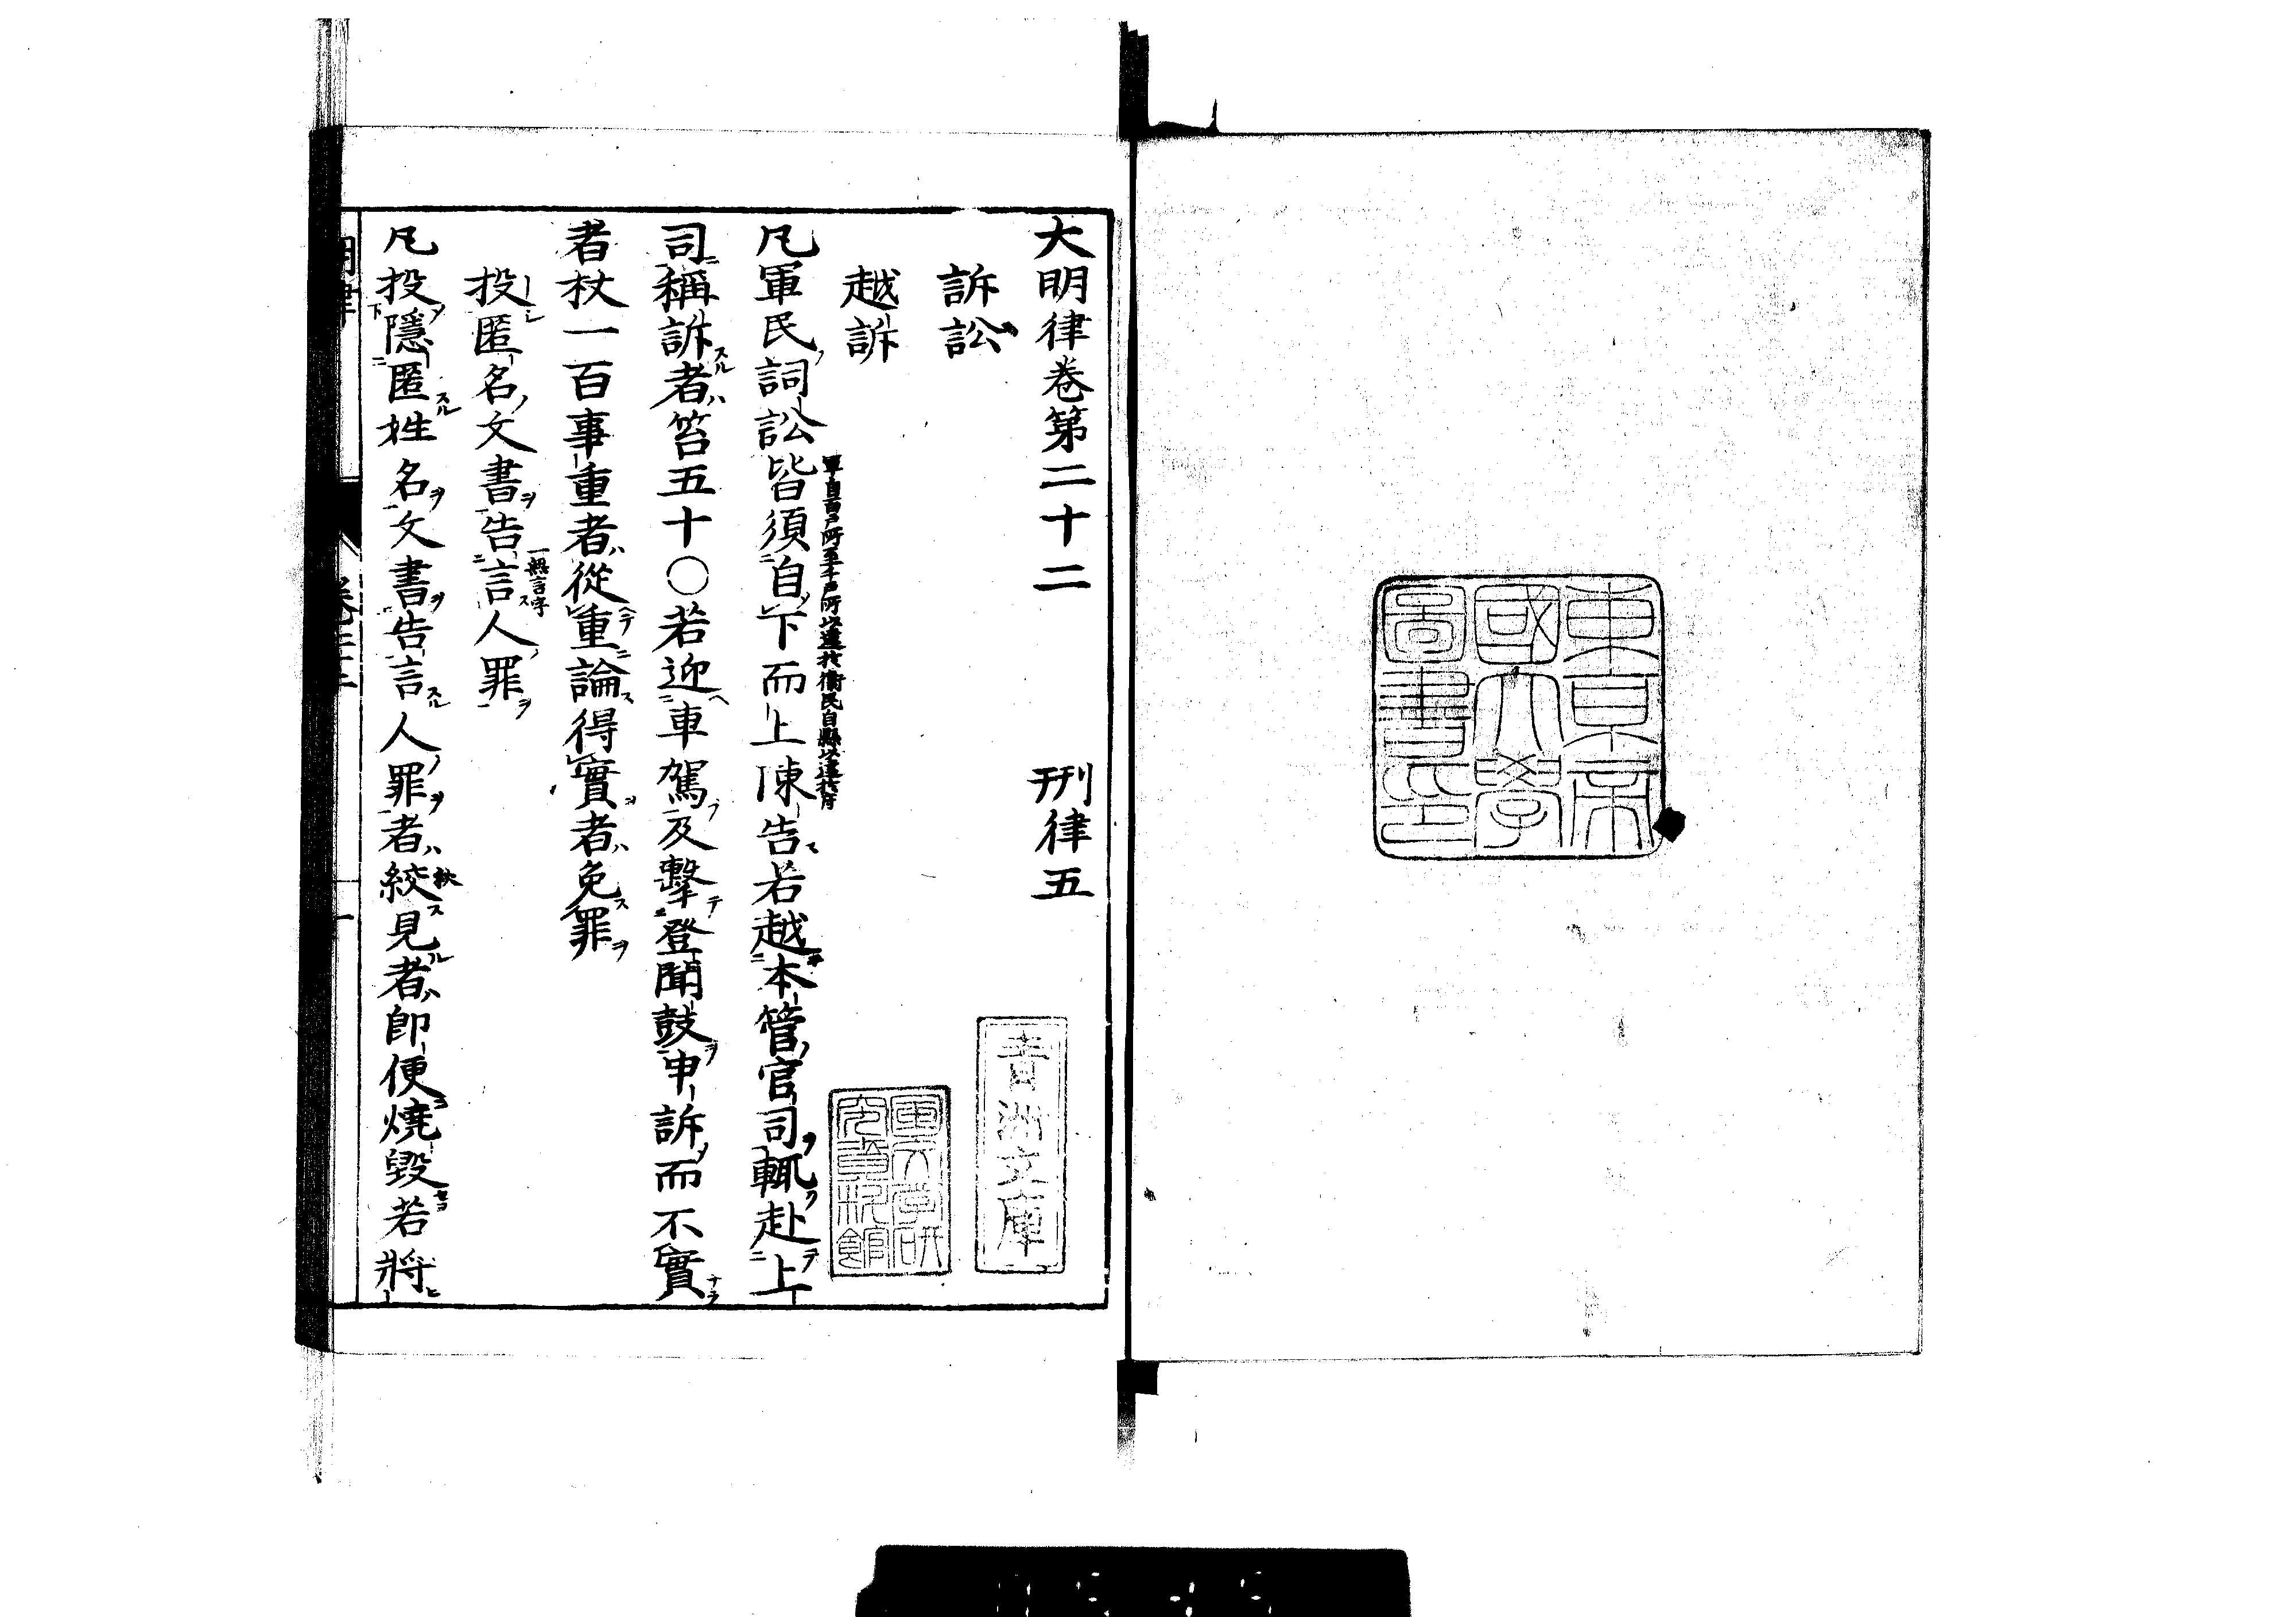 東京帝
國大學
圖書印
大明律卷第二十二 刑律五
訴訟
越訴
軍自百戶所至千戶所以達於衛民自縣以達於府
凡軍民詞訟皆須自下而上陳告若越本管官司輒赴上
司稱訴者笞五十○若迎車駕及擊登聞鼓申訴而不實
者杖一百事重者從重論得實者免罪
投匿名文書告言人罪
一無言字
凡投隱匿姓名文書告言人罪者絞見者即便燒毀若將
青洲文庫